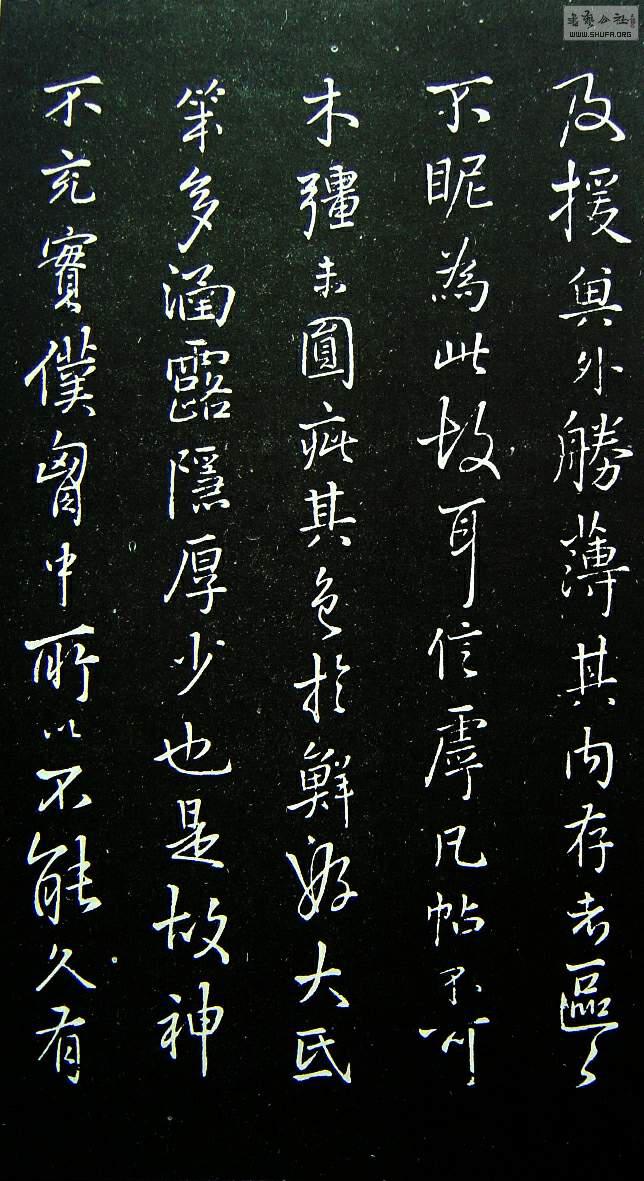 書藝公社
WWW.SHUFA.ORG
及援外勝薄其内存者區々
不昵為此故耳信虖凡帖不可
木彊未圓疵其色於鮮大氐
多涵露隱厚少也是故神
不充實僕胷中所以不能久有